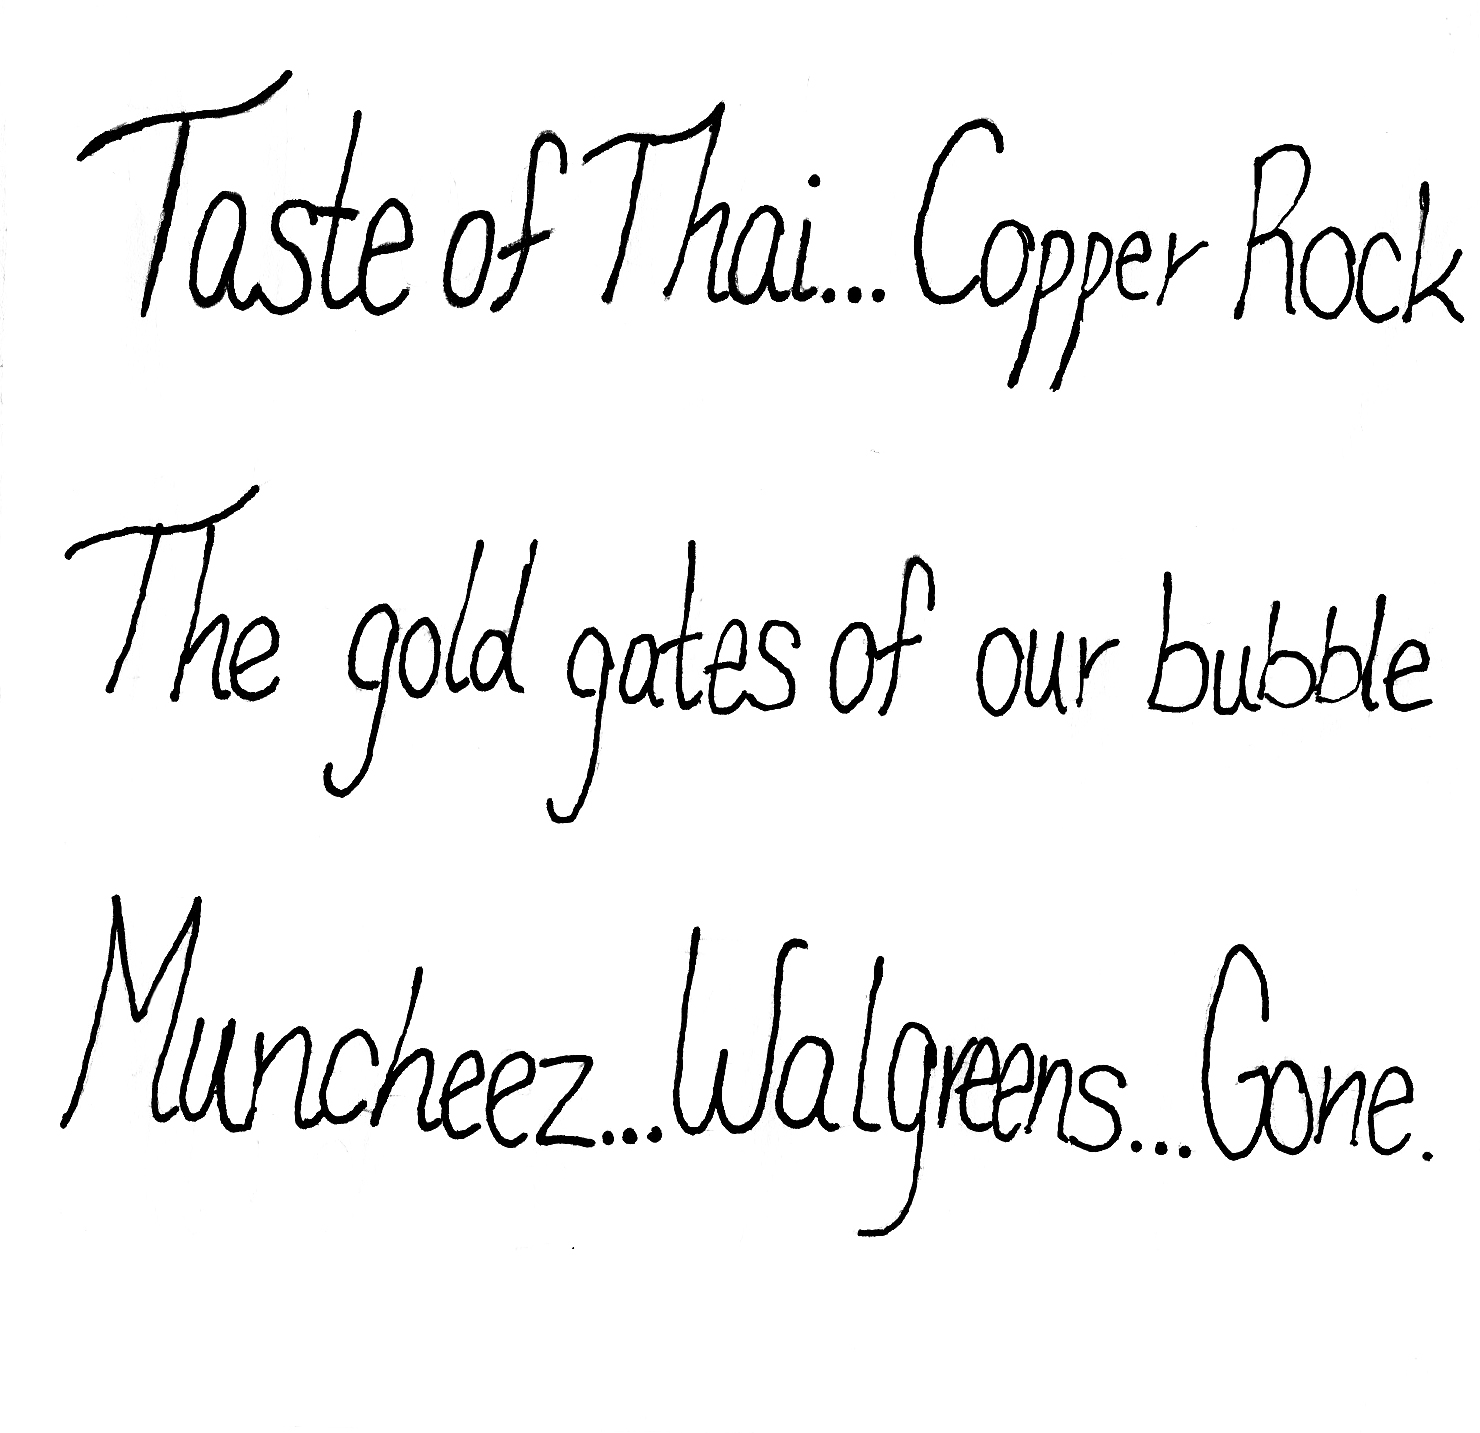 Taste of Thai... Copper Rock
The gold gates of our bubble
Muncheez... Walgreens... Gone.